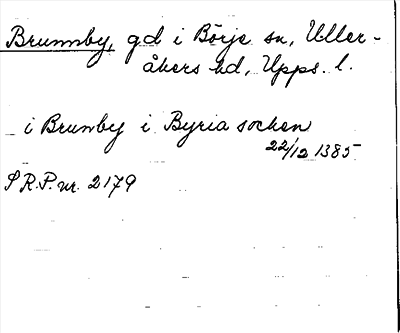 Brunnby, gd i Börje sn, Uller-
åkers hd, Upps. l.
i Brunby i Byria sochen
22/12 1385
S R.P. nr. 2179